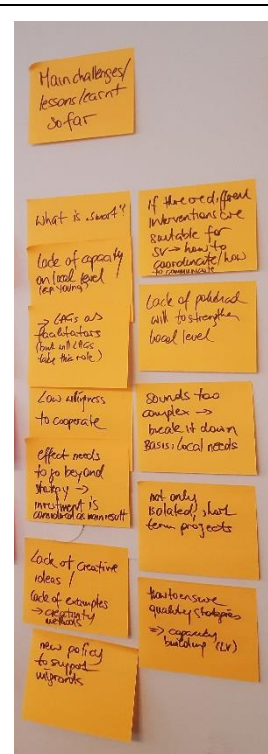 Main challenges/
lessons learnt
so far
What is "smart"?
Lack of capacity
on local level
(esp. young)
→ LAGs as
facilitators
(but will LAGs
take this role)
Low willigness
to cooperate
effect needs
to go beyond
strategy →
investment is
considered as main result
Lack of creative
ideas /
lack of examples
→ creativity
methods
new policy
to support
migrants
If there are different
interventions are
suitable for
SV → how to
coordinate/how
to communicate
Lack of political
will to strengthen
local level
Sounds too
complex →
break it down
Basis: local needs
not only
isolated, short
term projects
how to ensure
quality strategies
⇒ capacity
building (LV)